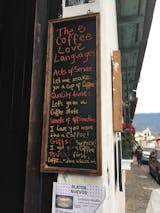 The 5
Coffee
Love
Languages!
Acts of Service
Let me make
you a cup of Coffee
Quality time:
Let's go on a
Coffee date
words of affirmation
I Love you more
than Coffee!
Gifts: Surprise!
I got you a Coffee
first,
PLATOS
NUEVOS